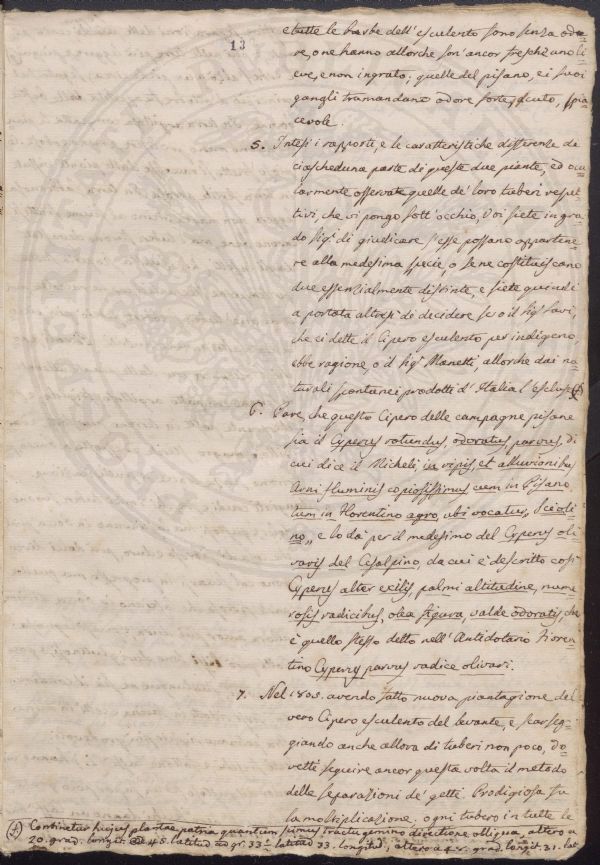 13
e tutte le barbe dell'esculento sono senza odo=
re, o ne hanno allorche son'ancor fresche uno li
eve, e non ingrato; quelle del pisano, e i suoi
gangli tramandano odore forte, acuto, spia
cevole.
5. Intesi i rapporti, e le caratteristiche differenze di
ciascheduna parte di queste due piante, ed ocu
larmente osservate quelle de' loro tuberi respet
tivi, che vi pongo sott'occhio, Voi siete in gra
do Sig.ri di giudicare s'esse possano appartene
re alla medesima specie, o se ne costituiscano
due essenzialmente distinte, e siete quindi
a portata altresì di decidere se o il Sig.r Savi,
che ci dette il Cipero esculento per indigeno
ebbe ragione, o il Sig.r Manetti, allorche dai na
turali spontanei prodotti d'Italia l'escluse (+)
6. Pare, che questo Cipero delle campagne pisane
sia il Cyperus rotundus, odoratus, parvus, di
cui dice il Micheli, in ripis, et alluvionibus
Arni fluminis copiosissimus cum in Pisano
tum in Florentino agro, ubi vocatur,
no,, e lo dà per il medesimo del Cyperus oli
varis del Cesalpino, da cui è descritto così
Cyperus alter exilis, palmi altitudine, nume
rosis radicibus, olea figura, valde odoratis, che
è quello stesso detto nell'Antidotario Fioren
tino Cyperus parvus radice olivari.
7. Nel 1808. avendo fatto nuova piantagione del
vero Cipero esculento del levante, e scarseg=
giando anche allora di tuberi non poco, do
vetti seguire ancor questa volta il metodo
delle separazioni de' getti. Prodigiosa fu
la moltiplicazione. ogni tubero in tutte le
(+) Continetur hujus plantae patria quantum tractu gemino directione obliqua, altero a
20. grad. longit. 45. latitud ad gr. 33 latitud 33. longitud. altero a grad. longit. 31. lat.